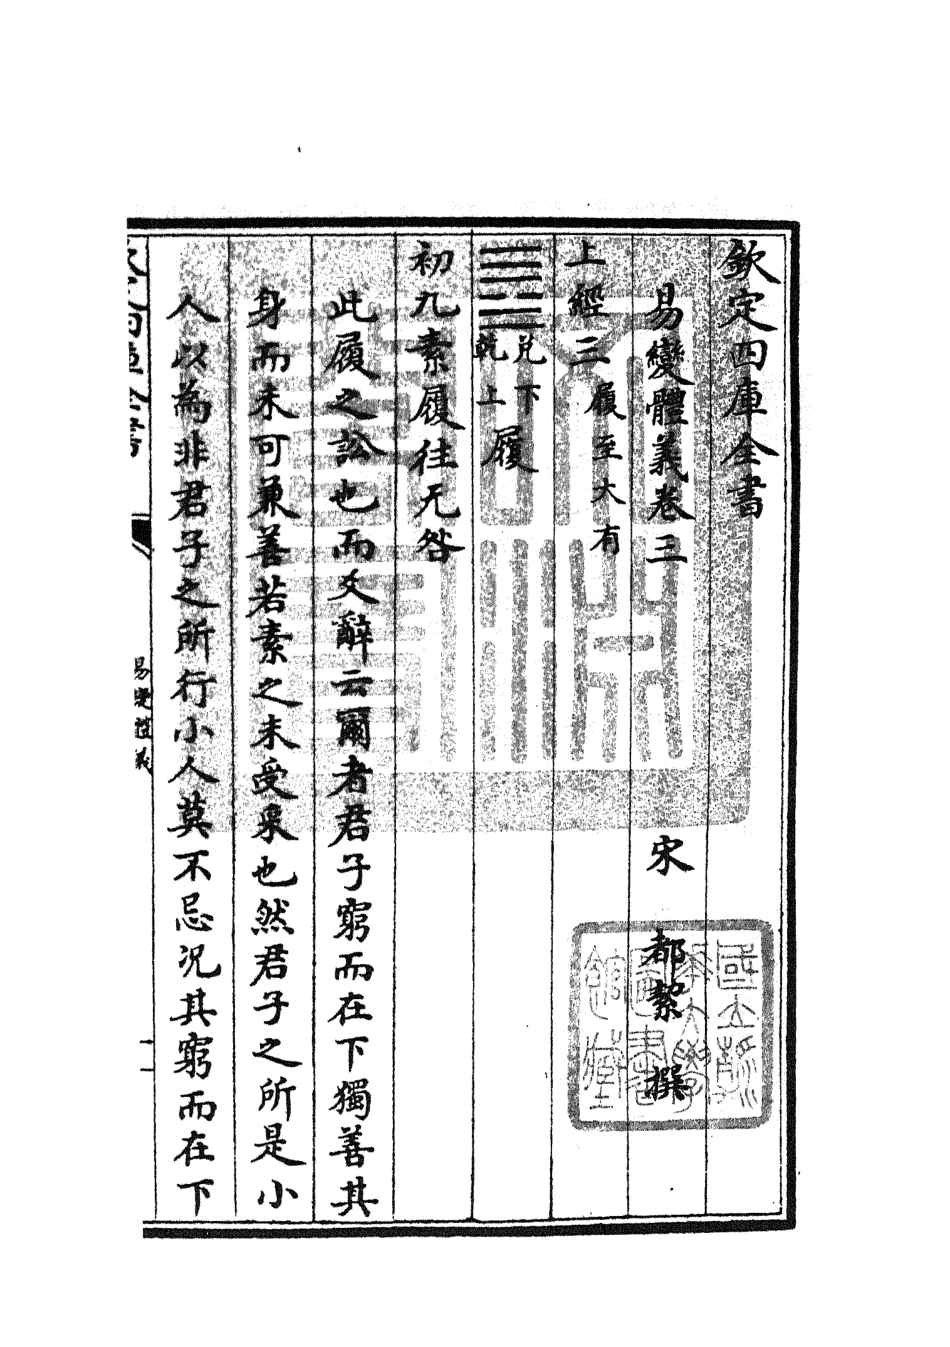 欽定四庫全書
易變體義卷三　宋　都絜　撰
上經三 履至大有
䷉ 兌下乾上 履
初九素履往无咎
此履之訟也而爻辭云爾者君子窮而在下獨善其
身而未可兼善若素之未受采也然君子之所是小
人以為非君子之所行小人莫不忌況其窮而在下
易變體義